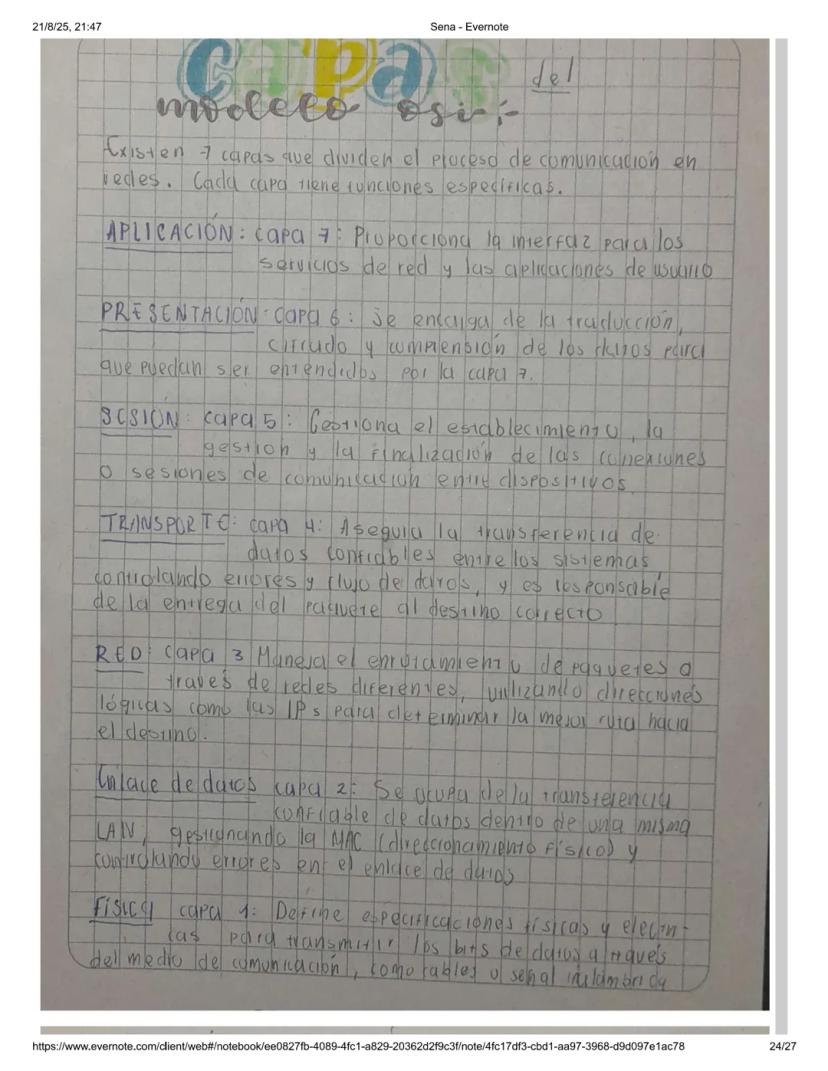 21/8/25, 21:47
Sena - Evernote
Capas del
modelo osi:-
Existen 7 capas que dividen el proceso de comunicación en
redes. Cada capa tiene funciones especificas.
APLICACIÓN: capa 7: Proporciona la interfaz para los
servicios de red y las aplicaciones de usuario
PRESENTACIÓN: capa 6: Se encarga de la traducción,
cifrado y comprensión de los datos para
que puedan ser entendidos por la capa 7.
SESIÓN: capa 5: Gestiona el establecimiento, la
gestión y la finalización de las conexiones
o sesiones de comunicación entre dispositivos.
TRANSPORTE: capa 4: Asegura la transferencia de
datos confiables entre los sistemas,
controlando errores y flujo de datos, y es responsable
de la entrega del paquete al destino correcto
RED: capa 3 Maneja el enrutamiento de paquetes a
través de redes diferentes, utilizando direcciones
lógicas como las IPs para determinar la mejor ruta hacia
el destino.
Enlace de datos capa 2: Se ocupa de la transferencia
confiable de datos dentro de una misma
LAN, gestionando la MAC (direccionamiento físico) y
controlando errores en el enlace de datos
Física capa 1: Define especificaciones físicas y eléctri-
cas para transmitir los bits de datos a través
del medio de comunicación, como cables o señal inalámbrica
https://www.evernote.com/client/web#/notebook/ee0827fb-4089-4fc1-a829-20362d2f9c3f/note/4fc17df3-cbd1-aa97-3968-d9d097e1ac78
24/27